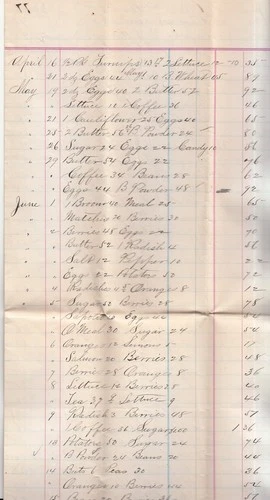 77
April 16 2 Lettuce 12 70 35
" 21 2 dz Eggs 44 10 B. Wheat 05 89
May 19 2 dz Eggs 40 2 Butter 52 92
" " Lettuce 10 Coffee 36 46
" 21 1 Cauliflower 25 Eggs 40 65
" 25 2 Butter 56 B. Powder 24 80
" 26 Sugar 24 Eggs 22 Candy 10 56
" 29 Butter 54 Eggs 22 76
" " Coffee 34 Beans 28 62
" " Eggs 44 B Powder 48 92
June 1 Broom 40 Meal 25 65
" " Matches 20 Berries 30 50
" 2 Berries 48 Eggs 22 70
" " Butter 52 1 Radish 4 56
" " Salt 12 Pepper 10 22
" " Eggs 22 Potatoes 50 72
" 4 Radishes 4 Oranges 8 12
" 5 Sugar 50 Berries 28 78
" " Eggs
" " O Meal 30 Sugar 24 54
" 6 Oranges 12 Lemons 5 17
" " Salmon 20 Berries 28 48
" 7 Berries 28 Oranges 8 36
" 8 Lettuce 12 Berries 28 40
" " Tea 37 Lettuce 9 46
" 9 Radish 3 Berries 48 51
" " Coffee 36 Sugar 1.00 1 36
" 10 Potatoes 50 Sugar 24 74
" " B Powder 24 Beans 20 44
" 14 Beets 6 Peas 30 36
" " Oranges 10 Berries
" 15